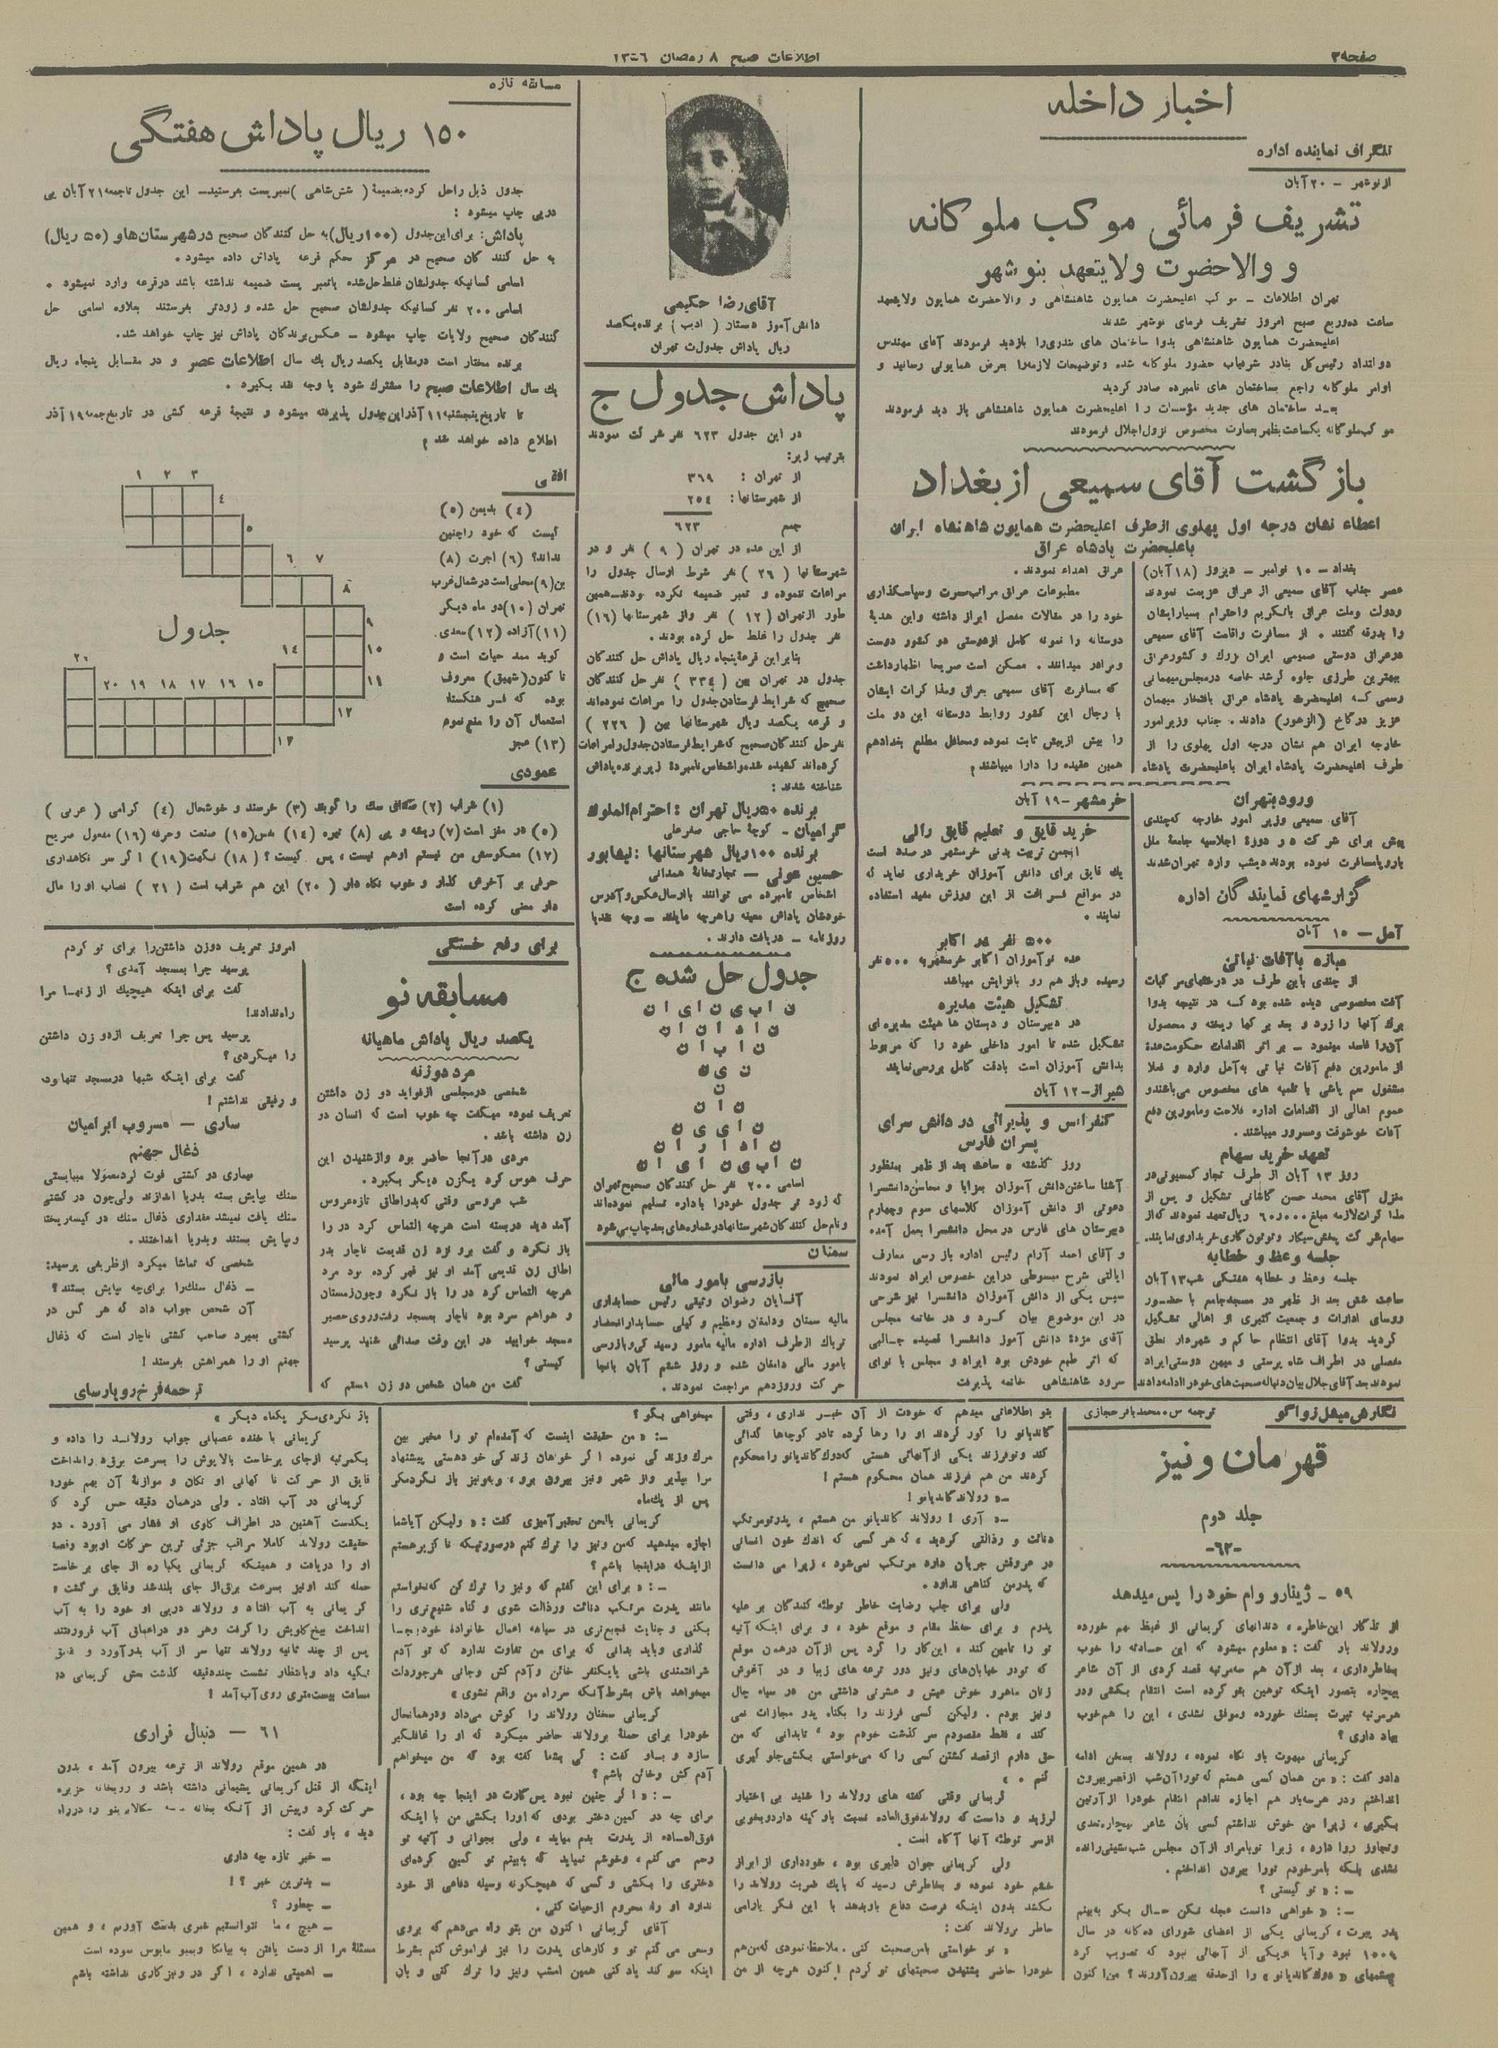 صفحه ۳
اطلاعات صبح ۸ رمضان ۱۳۵۶
اخبار داخله
تلگراف نماینده اداره
از نوشهر - ۲۰ آبان
تشریف فرمائی موکب ملوکانه
و والاحضرت ولایتعهد بنوشهر
تهران اطلاعات - موکب اعلیحضرت همایون شاهنشاهی و والاحضرت همایون ولایتعهد
ساعت ده‌وربع صبح امروز تشریف فرمای نوشهر شدند
اعلیحضرت همایون شاهنشاهی بدوا ساختمان های بندری را بازدید فرمودند آقای مهندس
دواتداد رئیس کل بنادر شرفیاب حضور ملوکانه شده و توضیحات لازمه را بعرض همایونی رسانید و
اوامر ملوکانه راجع بساختمان های نامبرده صادر گردید
بعد ساختمان های جدید مؤسسات را اعلیحضرت همایون شاهنشاهی باز دید فرمودند
موکب ملوکانه یکساعت بظهر بعمارت مخصوص نزول اجلال فرمودند
بازگشت آقای سمیعی از بغداد
اعطاء نشان درجه اول پهلوی از طرف اعلیحضرت همایون شاهنشاه ایران
باعلیحضرت پادشاه عراق
بغداد - ۱۰ نوامبر - دیروز (۱۸ آبان)
عصر جناب آقای سمیعی از عراق عزیمت نمودند
ودولت وملت عراق باتکریم واحترام بسیار ایشان
را بدرقه گفتند. از مسافرت واقامت آقای سمیعی
در عراق دوستی صمیمی ایران بزرگ و کشور عراق
بهترین طرزی جلوه گر شد خاصه در مجلس میهمانی
رسمی که اعلیحضرت پادشاه عراق بافتخار میهمان
عزیز در کاخ (الزهور) دادند. جناب وزیر امور
خارجه ایران هم نشان درجه اول پهلوی را از
طرف اعلیحضرت پادشاه ایران باعلیحضرت پادشاه
عراق اهداء نمودند.
مطبوعات عراق مراتب مسرت و سپاسگذاری
خود را در مقالات مفصل ابراز داشته واین هدیهٔ
دوستانه را نمونه کامل از دوستی دو کشور دوست
وبرادر میدانند. ممکن است صریحا اظهار داشت
که مسافرت آقای سمیعی بعراق ومذاکرات ایشان
با رجال این کشور روابط دوستانه این دو ملت
را بیش از پیش ثابت نموده ومحافل مطلع بغداد هم
همین عقیده را دارا میباشند
ورود بتهران
آقای سمیعی وزیر امور خارجه که چندی
پیش برای شرکت در دورهٔ اجلاسیه جامعهٔ ملل
باروپا مسافرت نموده بودند دیشب وارد تهران شدند
گزارشهای نمایندگان اداره
آمل - ۱۵ آبان
مبارزه باآفات نباتی
از چندی باین طرف در درختهای مرکبات
آفت مخصوصی دیده شده بود که در نتیجه بدوا
برك آنها را زرد و بعد برگها ریخته و محصول
آنرا فاسد مینمود - بر اثر اقدامات حکومت عدهٔ
از مامورین دفع آفات نباتی بآمل وارد و فعلا
مشغول سم پاشی با تلمبه های مخصوص می‌باشند و
عموم اهالی از اقدامات اداره فلاحت ومامورین دفع
آفات خوشوقت ومسرور میباشند.
تعهد خرید سهام
روز ۱۳ آبان از طرف تجار کمسیونی در
منزل آقای محمد حسن کاشانی تشکیل و پس از
مذاکرات لازمه مبلغ ۶۰۰۰۰ ریال تعهد نمودند که از
سهام شرکت پخش سیگار وتوتون گاری خریداری نمایند.
جلسه وعظ و خطابه
جلسه وعظ و خطابه هفتگی شب ۱۳ آبان
ساعت شش بعد از ظهر در مسجد جامع با حضور
روسای ادارات و جمعیت کثیری از اهالی تشکیل
گردید بدوا آقای انتظام حاکم و شهردار نطق
مفصلی در اطراف شاه پرستی و میهن دوستی ایراد
نمودند بعد آقای جلال بیان دنباله صحبت های خودرا ادامه دادند
خرمشهر - ۱۹ آبان
خرید قایق و تعلیم قایق رانی
انجمن تربیت بدنی خرمشهر در صدد است
یك قایق برای دانش آموزان خریداری نماید که
در مواقع فراغت از این ورزش مفید استفاده
نمایند.
۵۰۰ نفر در اکابر
عده نوآموزان اکابر خرمشهر به ۵۰۰ نفر
رسیده وباز هم رو بافزایش میباشد
تشکیل هیئت مدیره
در دبیرستان و دبستان ها هیئت مدیره ای
تشکیل شده تا امور داخلی خود را که مربوط
بدانش آموزان است بادقت کامل بررسی نمایند
شیراز - ۱۲ آبان
کنفرانس و پذیرائی در دانش سرای
پسران فارس
روز گذشته ۵ ساعت بعد از ظهر بمنظور
آشنا ساختن دانش آموزان بمزایا و محاسن دانشسرا
دعوتی از دانش آموزان کلاسهای سوم وچهارم
دبیرستان های فارس در محل دانشسرا بعمل آمده
و آقای احمد آرام رئیس اداره بازرسی معارف
ایالتی شرح مبسوطی در این خصوص ایراد نمودند
سپس یکی از دانش آموزان دانشسرا نیز شرحی
در این موضوع بیان کرد و در خاتمه مجلس
آقای مژدهٔ دانش آموز دانشسرا قصیده جالبی
که اثر طبع خودش بود ایراد و مجلس با نوای
سرود شاهنشاهی خاتمه پذیرفت
آقای رضا حکیمی
دانش‌آموز دبستان (ادیب) برنده یکصد
ریال پاداش جدول ت تهران
پاداش جدول ج
در این جدول ۶۲۳ نفر شرکت نمودند
بترتیب زیر:
از تهران: ۳۶۹
از شهرستانها: ۲۵۴
جمع ۶۲۳
از این عده در تهران (۹) نفر و در
شهرستانها (۲۶) نفر شرط ارسال جدول را
مراعات ننموده و تمبر ضمیمه نکرده بودند - همین
طور از تهران (۱۲) نفر واز شهرستانها (۱۶)
نفر جدول را غلط حل کرده بودند.
بنابر این قرعهٔ پنجاه ریال پاداش حل کنندگان
جدول در تهران بین (۳۳۴) نفر حل کنندگان
صحیح که شرایط فرستادن جدول را مراعات نموده‌اند
و قرعه یکصد ریال شهرستانها بین (۲۲۶)
نفر حل کنندگان صحیح که شرایط فرستادن جدول را مراعات
کرده‌اند کشیده شده و اشخاص نامبردهٔ زیر برنده پاداش
شناخته شدند:
برنده ۵۰ ریال تهران: احترام الملوك
گرامیان - کوچهٔ حاجی صفر علی
برنده ۱۰۰ ریال شهرستانها: نیشابور
حسین عونی - تجارتخانهٔ همدانی
اشخاص نامبرده می توانند با ارسال عکس و آدرس
خودشان پاداش معینه را هرچه مایلند - وجه نقد یا
روزنامه - دریافت دارند.
جدول حل شده ج
ن ا ب ی ن ا ی ا ن
ن ا د ا ن ا ن
ن ا ب ا ن
ن ی ن
ن
ن ا ن
ن ا ی ی ن
ن ا د ا ر ا ن
ن ا ب ی ن ا ی ا ن
اسامی ۲۰۰ نفر حل کنندگان صحیح تهران
که زود تر جدول خودرا باداره تسلیم نموده‌اند
و نام حل کنندگان شهرستانها در شماره های بعد چاپ می شود
سمنان
بازرسی بامور مالی
آقایان رضوان وثیقی رئیس حسابداری
مالیه سمنان ودامغان وعظیم و کیلی حسابدار انحصار
تریاك از طرف اداره مالیه مامور رسید گی وبازرسی
بامور مالی دامغان شده و روز ششم آبان بانجا
حرکت وروزدهم مراجعت نمودند.
مسابقه تازه
۱۵۰ ریال پاداش هفتگی
جدول ذیل راحل کرده بضمیمهٔ (شش شاهی) تمبرپست بفرستید - این جدول تا جمعه ۲۱ آبان پی
در پی چاپ میشود:
پاداش: برای این جدول (۱۰۰ ریال) به حل کنندگان صحیح در شهرستان ها و (۵۰ ریال)
به حل کنندگان صحیح در مرکز حکم قرعه پاداش داده میشود.
اسامی کسانیکه جدولشان غلط حل شده یا تمبر پست ضمیمه نداشته باشد در قرعه وارد نمیشود.
اسامی ۲۰۰ نفر کسانیکه جدولشان صحیح حل شده و زودتر بفرستند بعلاوه اسامی حل
کنندگان صحیح ولایات چاپ میشود - عکس برندگان پاداش نیز چاپ خواهد شد.
برنده مختار است در مقابل یکصد ریال یك سال اطلاعات عصر و در مقابل پنجاه ریال
یك سال اطلاعات صبح را مشترك شود یا وجه نقد بگیرد.
تا تاریخ پنجشنبه ۱۱ آذر این جدول پذیرفته میشود و نتیجهٔ قرعه کشی در تاریخ جمعه ۱۹ آذر
اطلاع داده خواهد شد
افقی
(۴) بدیمن (۵)
کیست که خود را چنین
نداند؟ (۶) اجرت (۸)
بن (۹) محلی است در شمال غرب
تهران (۱۰) دو ماه دیگر
(۱۱) آزاده (۱۲) سعدی
گوید ممد حیات است و
تا کنون (شهیق) معروف
بوده که فرهنگستان
استعمال آن را منع نموده
(۱۳) عجز
جدول
۱ ۲ ۳
۴
۵
۶ ۷
۸
۹
۱۰
۱۱
۱۲
۱۳
۱۴
۱۵ ۱۶ ۱۷ ۱۸ ۱۹ ۲۰
۲۱
عمودی
(۱) شراب (۲) صدای سك را گویند (۳) خرسند و خوشحال (۴) گرامی (عربی)
(۵) در مغز است (۷) ریشه و پی (۸) تیره (۱۴) نفس (۱۵) صنعت وحرفه (۱۶) مفعول صریح
(۱۷) معکوسش من نیستم اوهم نیست، پس کیست؟ (۱۸) نکهت (۱۹) اگر سر نگاهداری
حرفی بر آخرش گذار و خوب نگاه دار (۲۰) این هم شراب است (۲۱) نصاب او را مال
دار معنی کرده است
برای رفع خستگی
مسابقه نو
یکصد ریال پاداش ماهیانه
مرد دوزنه
شخصی در مجلسی از فواید دو زن داشتن
تعریف نموده میگفت چه خوب است که انسان دو
زن داشته باشد.
مردی در آنجا حاضر بود واز شنیدن این
حرف هوس کرد یکزن دیگر بگیرد.
شب عروسی وقتی که بدر اطاق تازه عروس
آمد دید در بسته است هرچه التماس کرد در را
باز نکرد و گفت برو نزد زن قدیمت ناچار بدر
اطاق زن قدیمی آمد او نیز قهر کرده بود مرد
هرچه التماس کرد در را باز نکرد وچون زمستان
و هوا هم سرد بود ناچار بمسجد رفت وروی حصیر
مسجد خوابید در این وقت صدائی شنید پرسید
کیستی؟
گفت من همان شخص دو زن هستم که
امروز تعریف دوزن داشتن را برای تو کردم
پرسید چرا بمسجد آمدی؟
گفت برای اینکه هیچیك از زنها مرا
راه ندادند!
پرسید پس چرا تعریف از دو زن داشتن
را میکردی؟
گفت برای اینکه شبها در مسجد تنها بودم
و رفیقی نداشتم!
ساری - مسروب ابراهیان
ذغال جهنم
بیماری در کشتی فوت کرد معمولا میبایستی
سنك بپایش بسته بدریا اندازند ولی چون در کشتی
سنك یافت نمیشد مقداری ذغال سنك در کیسه ریخته
وبپایش بستند وبدریا انداختند.
شخصی که تماشا میکرد از ظریفی پرسید:
- ذغال سنك را برای چه بپایش بستند؟
آن شخص جواب داد که هر کس در
کشتی بمیرد صاحب کشتی ناچار است که ذغال
جهنم او را همراهش بفرستد!
ترجمه فرخ روپارسای
نگارش میشل زواگو
ترجمه س. محمد باقر حجازی
قهرمان ونیز
جلد دوم
-۶۲-
۵۹ - ژینارو وام خود را پس میدهد
از تذکار این خاطره، دندانهای گریمانی از غیظ بهم خورده
ورولاند باز گفت: «معلوم میشود که این حادثه را خوب
بخاطر داری، بعد از آن هم سه مرتبه قصد کردی از آن شاعر
بیچاره بتصور اینکه توهین بتو کرده است انتقام بکشی ودو
هر مرتبه تیرت بسنك خورده وموفق نشدی، این را هم خوب
بیاد داری؟
گریمانی مبهوت باو نگاه نموده، رولاند بسخن ادامه
داد و گفت: «من همان کسی هستم که تو را آن شب از قصر بیرون
انداختم ودر هر سه بار هم اجازه ندادم انتقام خودرا از آرتین
بگیری، زیرا من خوش نداشتم کسی بآن شاعر بیچاره تعدی
وتجاوز روا دارد، زیرا تو بامر او از آن مجلس شب نشینی رانده
نشدی بلکه بامر خودم تورا بیرون انداختم.
-: «تو کیستی؟
-: «خواهی دانست عجله نکن حال بگو به بینم
پدر پیرت، گریمانی یکی از اعضای شورای ده گانه در سال
۱۵۰۹ نبود وآیا او یکی از آنهائی نبود که تصویب کرد
چشمهای «دوك کاندیانو» را از حدقه بیرون آورند؟ من اکنون
بتو اطلاعاتی میدهم که خودت از آن خبر نداری، وقتی
کاندیانو را کور کردند او را رها کرده تا در کوچه ها گدائی
کند وتو فرزند یکی از آنهائی هستی که دوك کاندیانو را محکوم
کردند من هم فرزند همان محکوم هستم!
-: «رولاند کاندیانو!
-: آری! رولاند کاندیانو من هستم، پدر تو مرتکب
دنائت و رذالتی گردید، که هر کسی که اندك خون انسانی
در عروقش جریان دارد مرتکب نمی‌شود، زیرا می دانست
که پدر من گناهی ندارد.
ولی برای جلب رضایت خاطر توطئه کنندگان بر علیه
پدرم و برای حفظ مقام و موقع خود، و برای اینکه آتیه
تو را تامین کند، این کار را کرد پس از آن در همان موقع
که تو در خیابان‌های ونیز دور ترعه های زیبا و در آغوش
زنان ماهرو خوش عیش و عشرتی داشتی من در سیاه چال
ونیز بودم. ولیکن کسی فرزند را بگناه پدر مجازات نمی
کند، فقط مقصودم سر گذشت خودم بود، تا بدانی که من
حق دارم از قصد کشتن کسی را که میخواستی بکشی جلوگیری
کنم.»
گریمانی وقتی گفته های رولاند را شنید بی اختیار
لرزید و دانست که رولاند فوق العاده نسبت باو کینه دارد و بخوبی
از سر توطئه آنها آگاه است.
ولی گریمانی جوان دلیری بود، خودداری از ابراز
خشم خود نموده و بخاطرش رسید که با یك ضربت رولاند را
بکشد بدون اینکه فرصت دفاع باو بدهد با این فکر با آرامی
خاطر برولاند گفت:
«تو خواستی بامن صحبت کنی. ملاحظه نمودی که من هم
خودرا حاضر بشنیدن صحبتهای تو کردم اکنون هرچه از من
میخواهی بگو؟
-: «من حقیقت اینست که آمده‌ام تو را مخیر بین
مرك وزندگی نموده اگر خواهان زندگی خود هستی پیشنهاد
مرا بپذیر واز شهر ونیز بیرون برو، وبه ونیز باز نگرد مگر
پس از یك ماه
گریمانی بالحن تحقیر آمیزی گفت: «ولیکن آیا شما
اجازه میدهید که من ونیز را ترك کنم در صورتیکه ناگزیر هستم
از اینکه در اینجا باشم؟
-: «برای این گفتم که ونیز را ترك کن که نخواستم
مانند پدرت مرتکب دنائت ورذالت شوی و گناه شنیع تری را
بکنی و جنایت فجیع تری در سیاهه اعمال خانوادهٔ خود بجا
گذاری وباید بدانی که برای من تفاوت ندارد که تو آدم
شرافتمندی باشی یا یکنفر خائن وآدم کش وجانی هرجور دلت
میخواهد باش بشرط آنکه سر راه من واقع نشوی»
گریمانی سخنان رولاند را گوش می‌داد و در همانحال
خودرا برای حملهٔ برولاند حاضر میکرد که او را غافلگیر
سازد و باو گفت: کی بشما گفته بود که من میخواهم
آدم کش وخائن باشم؟
-: «اگر چنین نبود پس کارت در اینجا چه بود،
برای چه در کمین دختر بودی که او را بکشی من با اینکه
فوق العاده از پدرت بدم میاید، ولی بجوانی و آتیه تو
رحم می کنم، وخوشم نمیاید که به بینم تو کمین کرده‌ای
دختری را بکشی و کسی که هیچگونه وسیله دفاعی از خود
ندارد او را محروم از حیات کنی.
آقای گریمانی اکنون من بتو راه می‌دهم که بروی
وسعی می کنم تو و کارهای پدرت را نیز فراموش کنم بشرط
اینکه سوگند یاد کنی همین امشب ونیز را ترك کنی و بآن
باز نگردی مگر یکماه دیگر»
گریمانی با خنده عصبانی جواب رولاند را داده و
یکمرتبه از جای برخاست بالاپوش را بسرعت برق انداخت
قایق از حرکت ناگهانی او تکان و موازنهٔ آن بهم خورده
گریمانی در آب افتاد. ولی در همان دقیقه حس کرد که
یکدست آهنین در اطراف گلوی او فشار می آورد. در
حقیقت رولاند کاملا مراقب جزئی ترین حرکات او بود وقصد
او را دریافت و همینکه گریمانی یکباره از جای برخاست
حمله کند او نیز بسرعت برق از جای بلند شد وقایق برگشت،
گریمانی به آب افتاد و رولاند در پی او خود را به آب
انداخت بیخ گلویش را گرفت وهر دو در اعماق آب فرو رفتند
پس از چند ثانیه رولاند تنها سر از آب بدر آورد و بقایق
تکیه داد وبانتظار نشست چند دقیقه گذشت نعش گریمانی در
مسافت بیست متری روی آب آمد!
۶۱ - دنبال فراری
در همین موقع رولاند از ترعه بیرون آمد، بدون
اینکه از قتل گریمانی پشیمانی داشته باشد و روبخانه جزیره
حرکت کرد وپیش از آنکه بخانه برسد اسکالابرینو را در راه
دید، باو گفت:
- خبر تازه چه داری
- بدترین خبر؟!
- چطور؟
- هیچ، ما نتوانستیم خبری بدست آوریم، و همین
مسئله مرا از دست یافتن به بیانکا وبمبو مایوس نموده است
- اهمیتی ندارد، اگر در ونیز کاری نداشته باشم